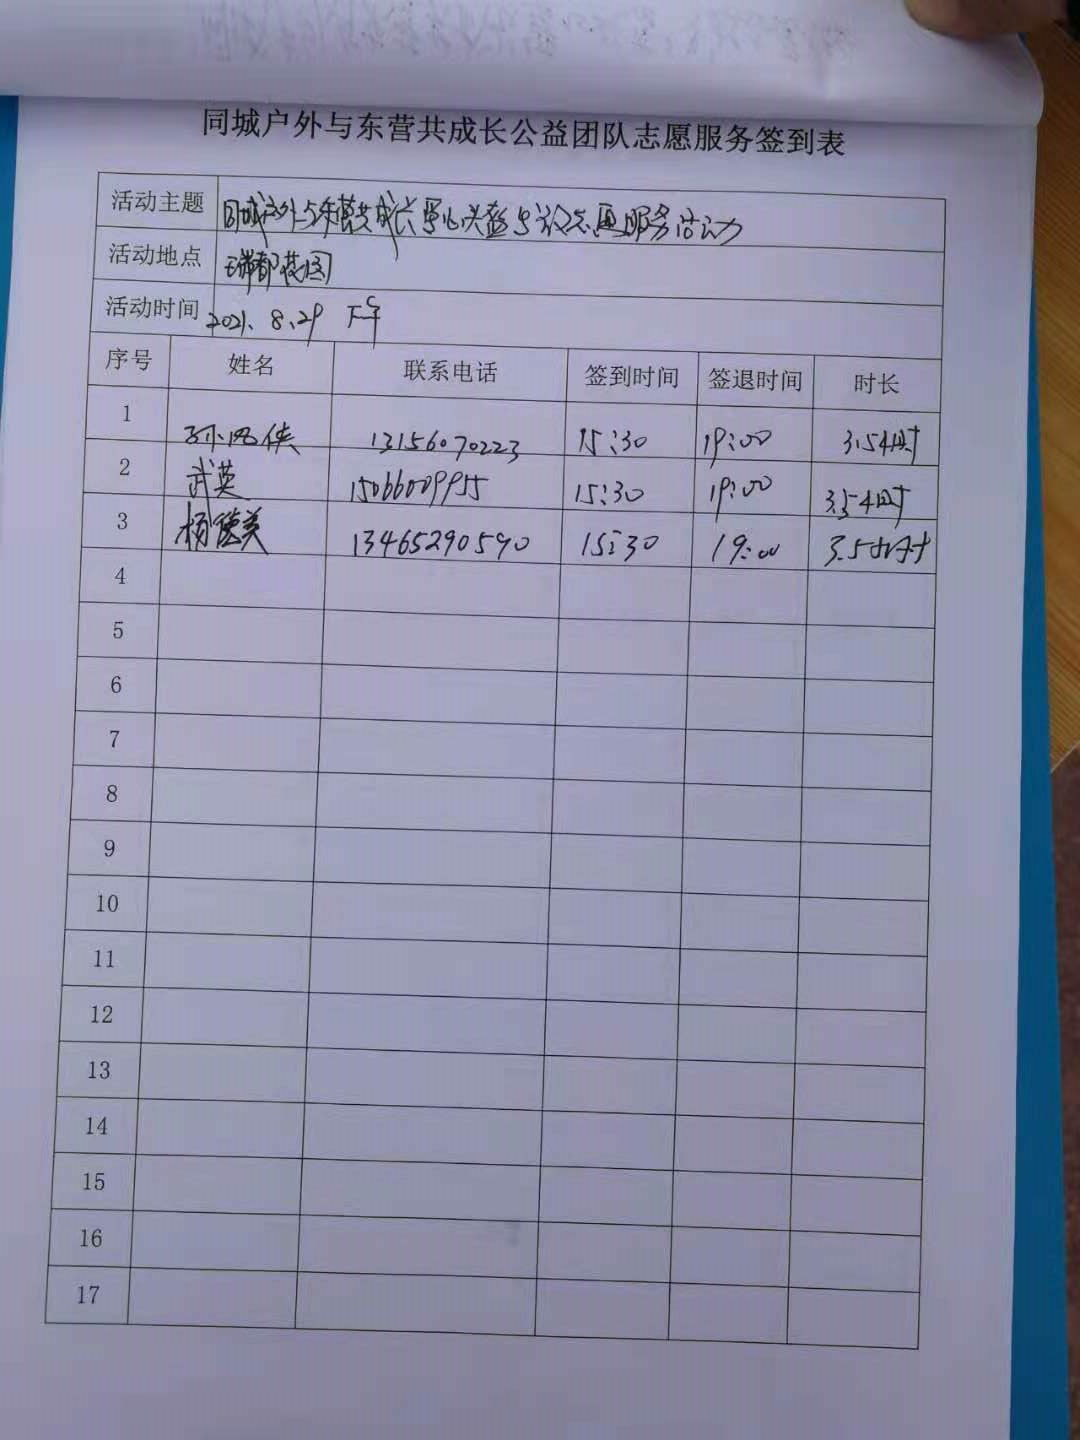 同城户外与东营共成长公益团队志愿服务签到表
活动主题 同城户外与东营共成长 志愿服务活动
活动地点 瑞都花园
活动时间 2021.8.29 下午
序号 姓名 联系电话 签到时间 签退时间 时长
1 孙风侠 13156070223 15:30 19:00 3.5小时
2 武英 15066009955 15:30 19:00 3.5小时
3 杨德美 13465290590 15:30 19:00 3.5小时
4
5
6
7
8
9
10
11
12
13
14
15
16
17